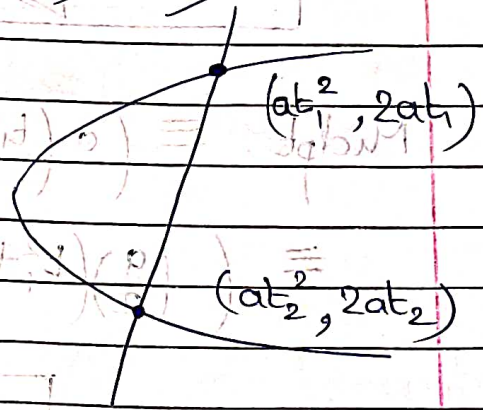 (at₁², 2at₁)
(at₂², 2at₂)